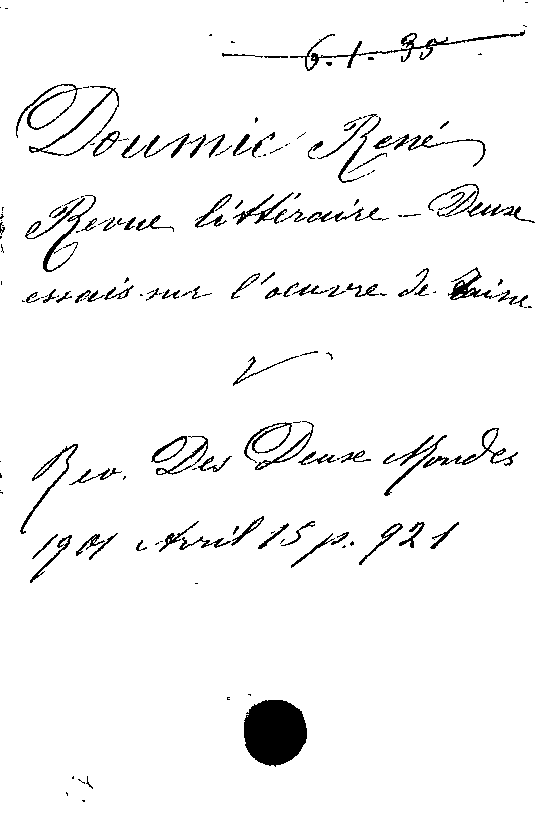 6.1.35
Doumic René
Revue littéraire – Deux
essais sur l'oeuvre de Taine
Rev. Des Deux Mondes
1901 Avril 15 p. 921